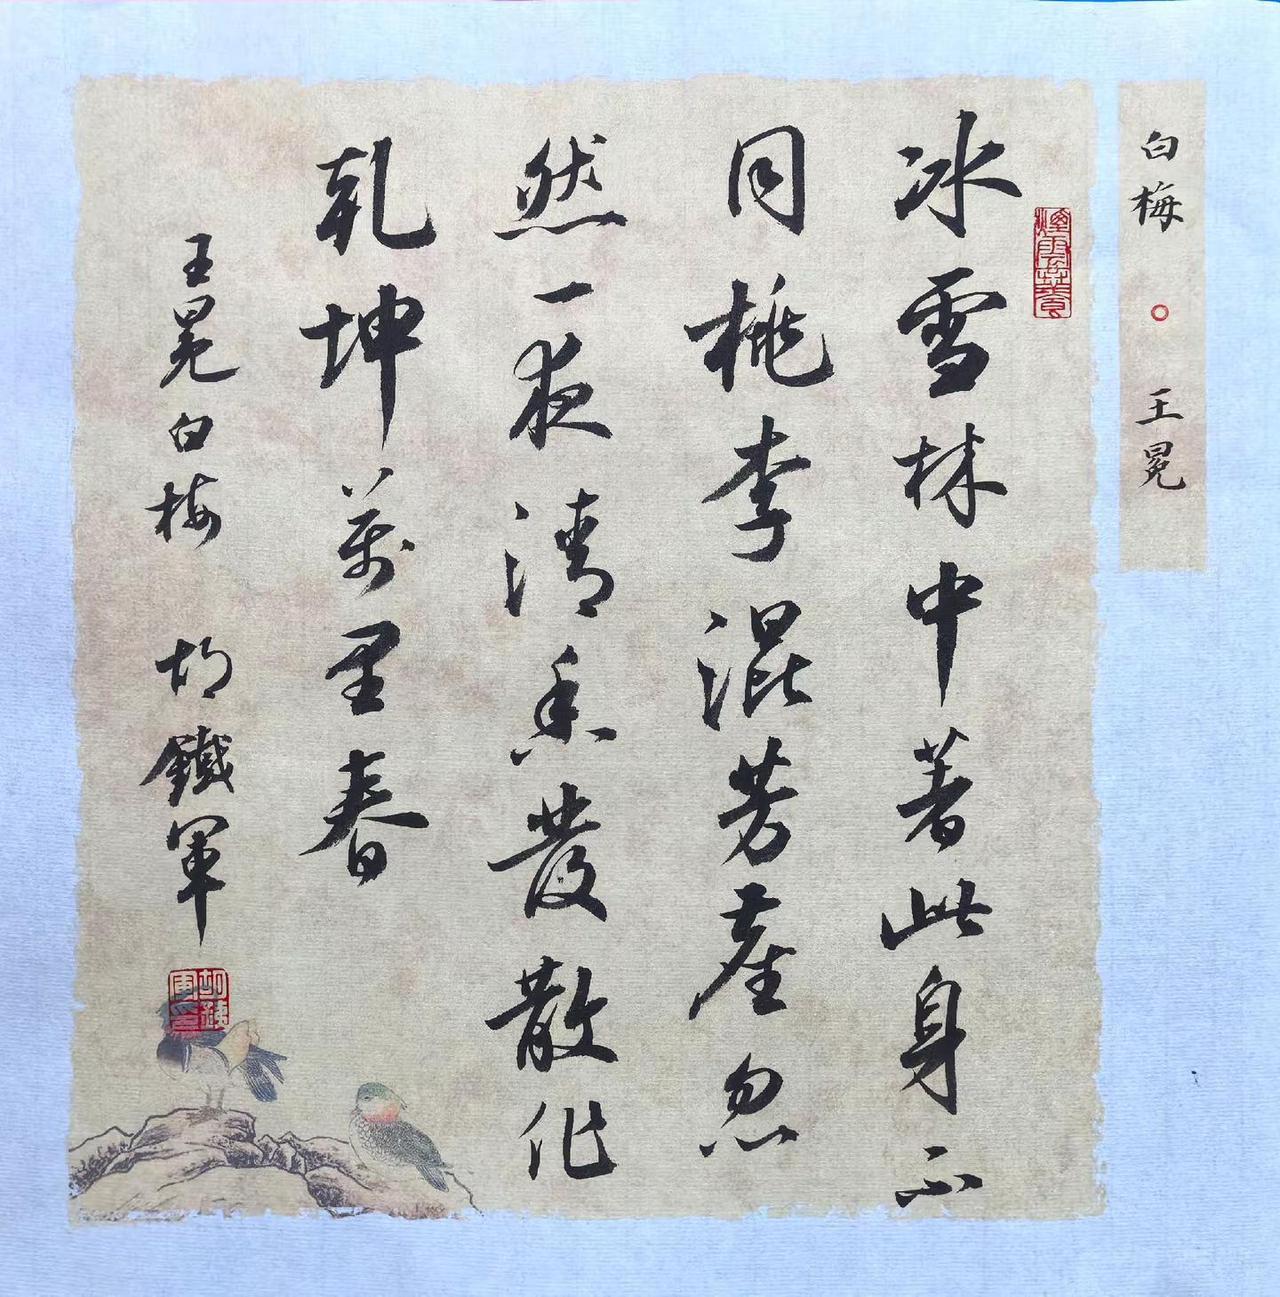 白梅 。 王冕
冰雪林中著此身不
同桃李混芳塵忽
然一夜清香發散作
乾坤萬里春
王冕白梅 胡鐵軍